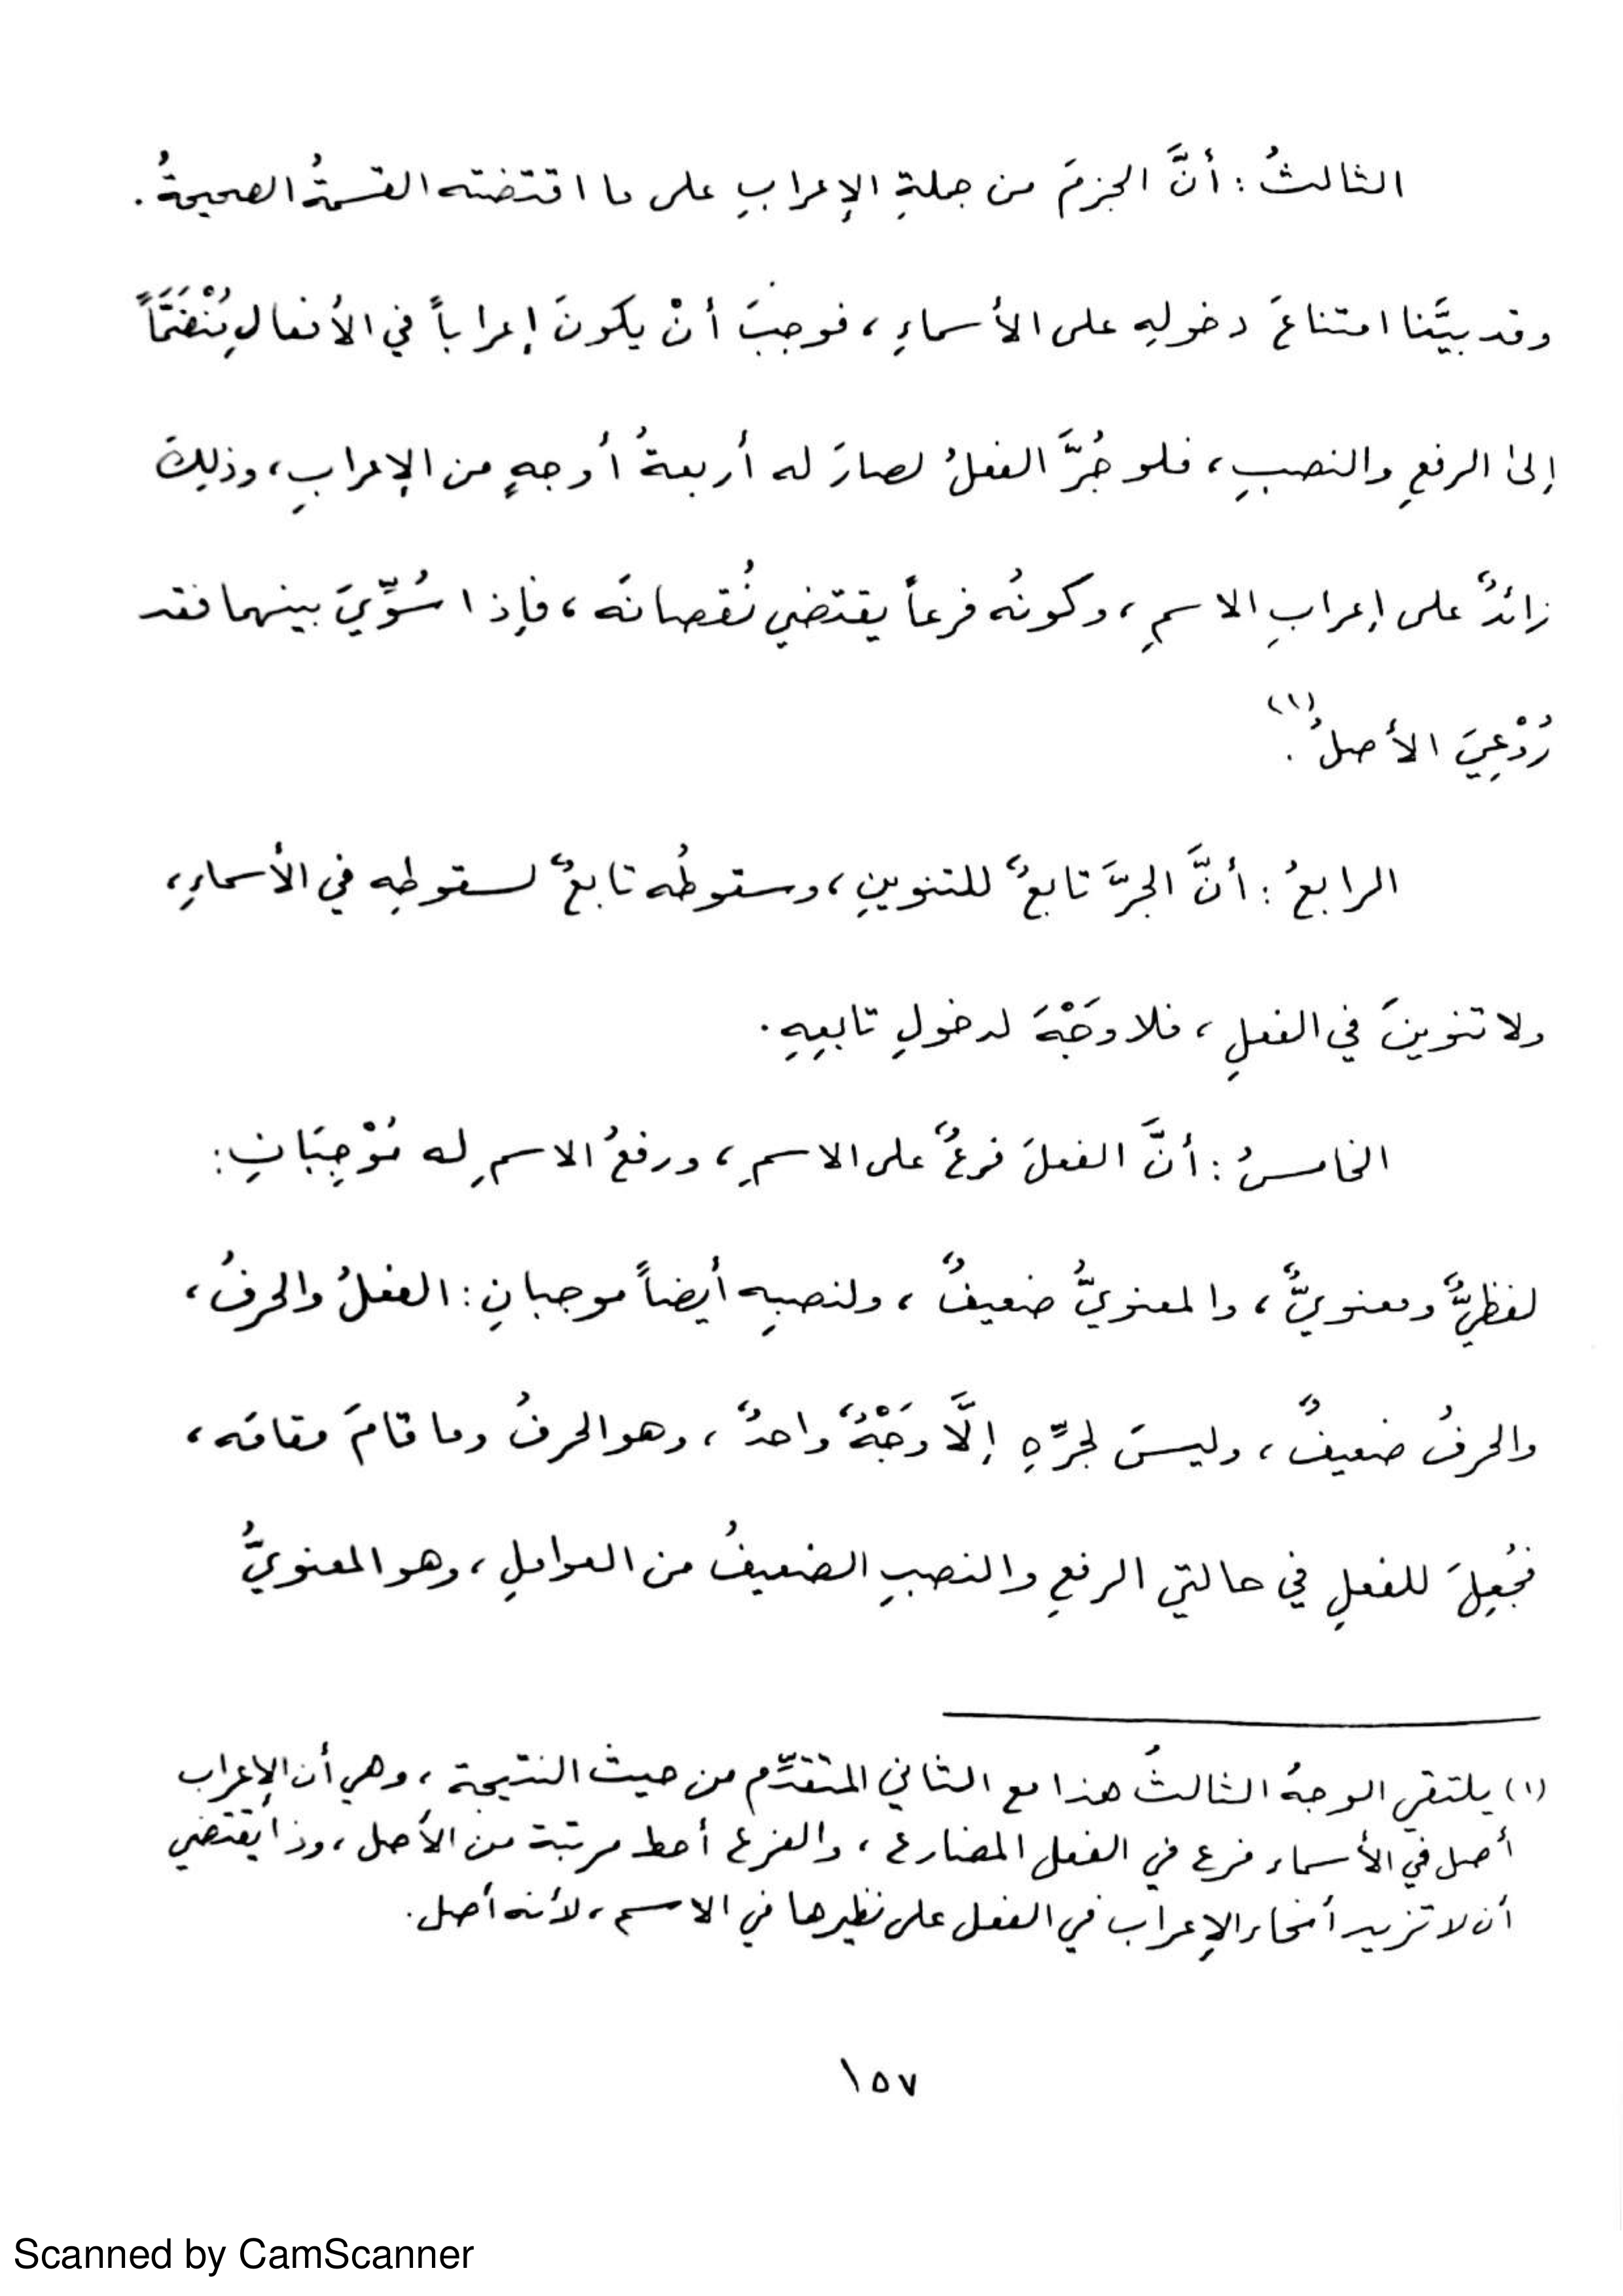 الثالثُ : أنَّ الجزمَ من جملةِ الإعرابِ على ما اقتضته القسمةُ الصحيحةُ .
وقد بيَّنا امتناعَ دخولِهِ على الأسماءِ ، فوجبَ أنْ يكونَ إعراباً في الأفعالِ مُنْضَمَّاً
إلى الرفعِ والنصبِ ، فلو جُرَّ الفعلُ لصارَ له أربعةُ أوجهٍ من الإعرابِ ، وذلكَ
زائدٌ على إعرابِ الاسمِ ، وكونُه فرعاً يقتضي نُقصانَه ، فإذا سُوِّيَ بينهما فقد
رُوْعِيَ الأصلُ (١) .
الرابعُ : أنَّ الجرَّ تابعٌ للتنوينِ ، وسقوطُه تابعٌ لسقوطِهِ في الأسماءِ ،
ولا تنوينَ في الفعلِ ، فلا وَجْهَ لدخولِ تابعِهِ .
الخامسُ : أنَّ الفعلَ فرعٌ على الاسمِ ، ورفعُ الاسمِ له مُوْجِبَانِ :
لفظيٌّ ومعنويٌّ ، والمعنويُّ ضعيفٌ ، ولنصبِهِ أيضاً موجبانِ : الفعلُ والحرفُ ،
والحرفُ ضعيفٌ ، وليسَ لجرِّهِ إلَّا وَجْهٌ واحدٌ ، وهو الحرفُ وما قامَ مقامَه ،
فجُعِلَ للفعلِ في حالتي الرفعِ والنصبِ الضعيفُ من العواملِ ، وهو المعنويُّ
(١) يلتقي الوجهُ الثالثُ هذا مع الثاني المتقدِّم من حيث النتيجة ، وهي أن الإعراب
أصل في الأسماء فرع في الفعل المضارع ، والفرع أحط مرتبة من الأصل ، وذا يقتضي
أن لا تزيد أنحاء الإعراب في الفعل على نظيرها في الاسم ، لأنه أصل .
١٥٧
Scanned by CamScanner